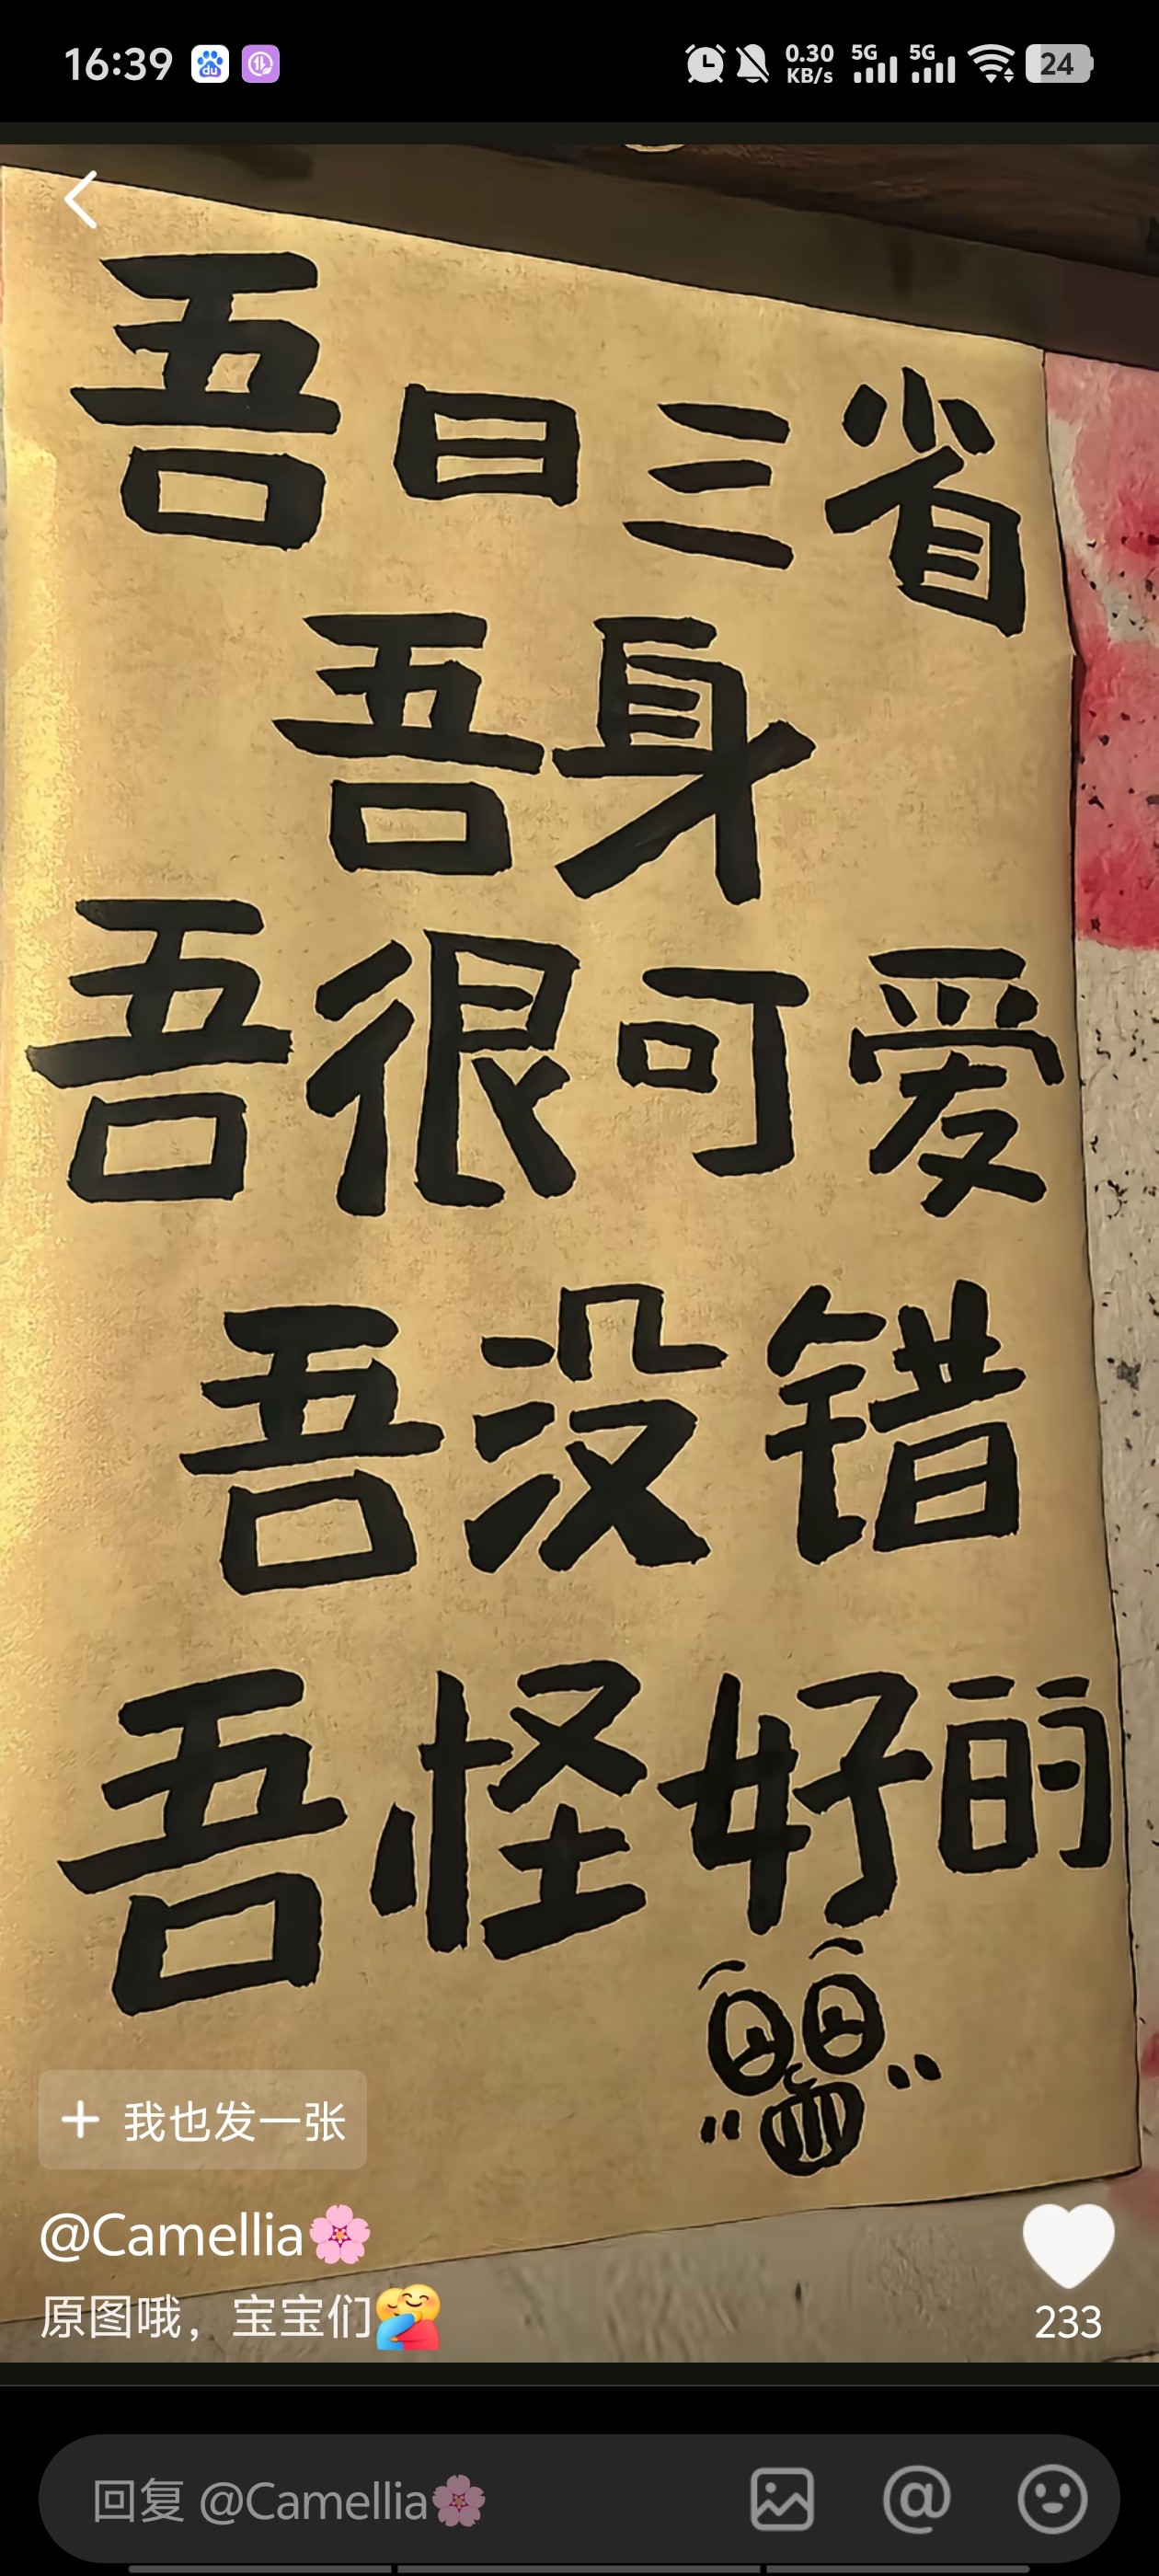 16:39
0.30 KB/s 5G 5G 24
吾日三省
吾身
吾很可爱
吾没错
吾怪好的
+ 我也发一张
@Camellia🌸
原图哦，宝宝们🫂
233
回复 @Camellia🌸